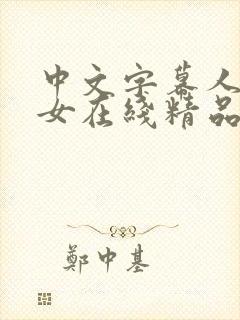 中文字幕人
女在綫精品
鄭中基